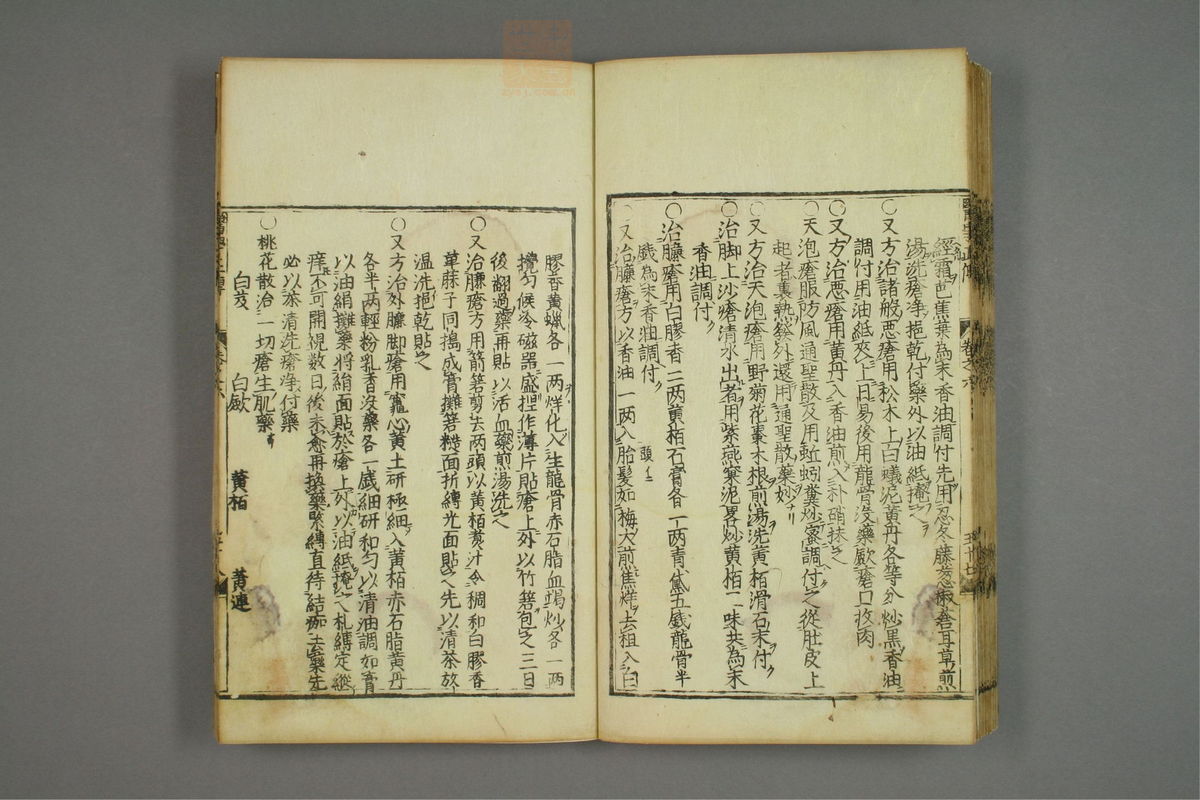 經霜芭蕉葉為末香油調付先用忍冬藤葱椒蒼耳草煎
湯洗瘡淨挹乾付藥外以油紙掩之
〇又方治諸般悪瘡用松木上白蟻泥黄丹各等分炒黒香油
調付用油紙夾上日易後用龍骨没藥歛瘡口收肉
〇又方治悪瘡用黄丹入香油煎入朴硝抹之
〇天泡瘡服防風通聖散及用蚯蚓糞炒蜜調付之從肚皮上
起者裏熱發外還用通聖散藥妙
〇又方治天泡瘡用野菊花棗木根煎湯洗黄栢滑石末付
〇治脚上沙瘡清水出者用紫燕窠泥畧炒黄栢二味共為末
香油調付
〇治臁瘡用白膠香二两黄栢石膏各一两青黛五銭龍骨半
銭為末香油調付
〇又治臁瘡方以香油一两入胎髪如梅大煎焦烊去粗入白
膠香黄蝋各一两烊化入生龍骨赤石脂血竭炒各一两
攪匀候冷磁器盛捏作薄片貼瘡上外以竹箬包之三日
後翻過藥再貼以活血藥煎湯洗之
〇又治臁瘡方用箭箬剪去两頭以黄栢煑汁令稠和白膠香
草蔴子同搗成膏攤箬糙面折縛光面貼之先以清茶放
温洗挹乾貼之
〇又方治外臁脚瘡用竈心黄土研極細入黄栢赤石脂黄丹
各半两輕粉乳香没藥各一戲細研和匀以清油調如膏
以油絹攤藥將絹面貼於瘡上外以油紙掩之札縛定縱
痒不可開視数日後未愈再換藥緊縛直待結痂去藥先
必以茶清洗瘡淨付藥
〇桃花散治一切瘡生肌藥
白芨　白歛　黄栢　黄連